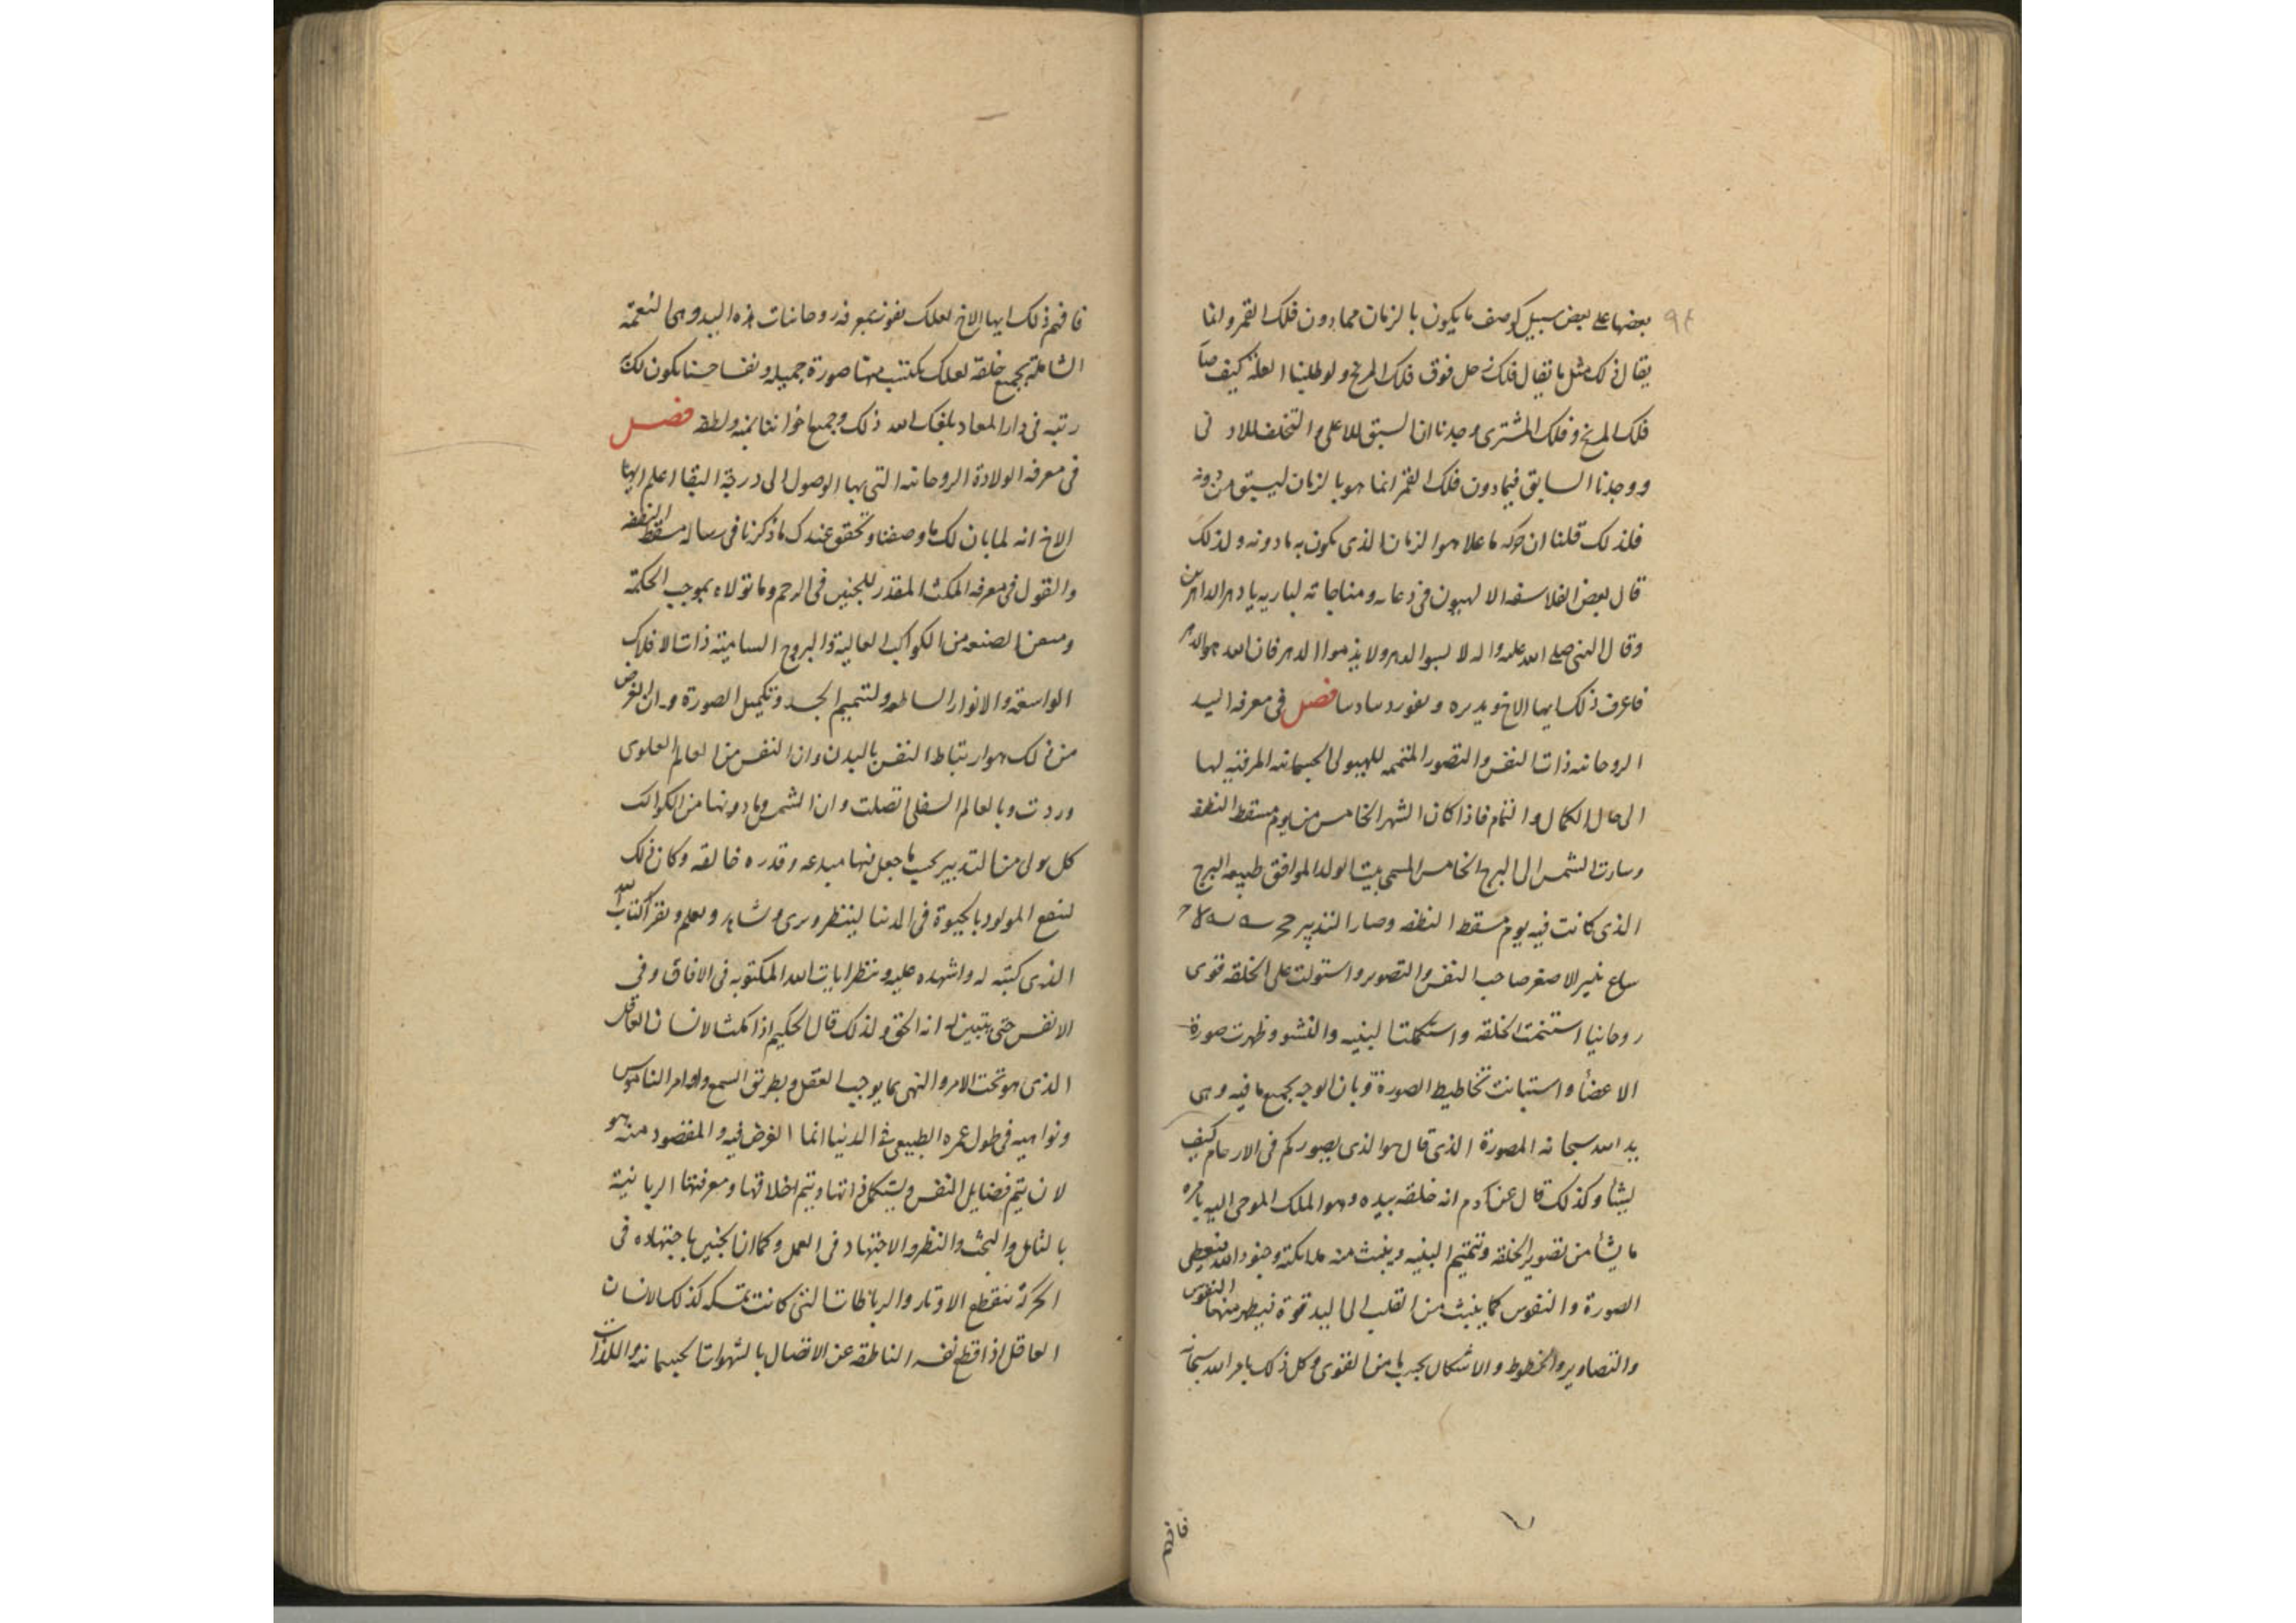 بعضها على بعض سبيل كوصف ما يكون بالزمان مما دون فلك القمر وانما
يقال ذلك مثل ما يقال فلك زحل فوق فلك المريخ ولو طلبنا العلة كيف صا
فلك المريخ وفلك المشترى وجدنا ان السبق للاعلى والتخلف للاد نى
ووجدنا السابق فيما دون فلك القمر انما هو بالزمان ليسبق من دونه
فلذلك قلنا ان حركه ما علا هو الزمان الذى يكون به ما دونه ولذلك
قال بعض الفلاسفه الالهيون فى دعايه ومناجاته لباريه يا دهر الداهرين
وقال النبى صلى الله عليه واله لا تسبوا الدهر ولا يذموا الدهر فان الله هو الدهر
فاعرف ذلك ايها الاخ وتدبره فصل فى معرفه اليد
الروحانيه ذات النفس والتصور المتممه للهيولى الجسمانيه المرقيه لها
الى حال الكمال والتمام فاذا كان الشهر الخامس من يوم مسقط النطفه
وسارت الشمس الى البرج الخامس المسمى بيت الولد الموافق طبيعه البرج
الذى كانت فيه يوم مسقط النطفه وصار التدبير
الاصغر صاحب النفس والتصوير واستولت على الخلقه قوى
روحانيا استتمت الخلقه واستكملت البنيه والنشو وظهرت صورة
الاعضأ واستبانت تخاطيط الصورة وبان الوجه بجميع ما فيه وهى
يد الله سبحانه المصورة الذى قال هو الذى يصوركم فى الارحام كيف
يشأ وكذلك قال عن آدم انه خلقه بيده وهو الملك الموحى اليه بامره
ما يشأ من تصوير الخلقه وتتميم البنيه وينبث منه ملائكته وجنود الله فتعطى
الصورة والنفوس كما ينبث من القلب الى اليد قوة فيظهر منها النقوش
والتصاوير والخطوط والاشكال بحسب ما من القوى وكل ذلك بامر الله سبحانه
فافهم
فافهم ذلك ايها الاخ لعلك تفوز بمعرفه روحانيات هذه اليد وهى النعمة
الشاملة بجميع خلقه لعلك تكتسب منها صورة جميله ونفسا حسنا تكون لك
رتبه فى دار المعاد بلغك الله ذلك وجميع اخواننا بمنه ولطفه فصل
فى معرفه الولادة الروحانيه التى بها الوصول الى درجة البقا اعلم ايها
الاخ انه لما بان لك ما وصفنا وتحقق عندك ما ذكرنا فى رساله مسقط النطفه
والقول فى معرفه المكث المقدر للجنين فى الرحم وما تولاه بموجب الحكمة
ومعنى الصنعه من الكواكب العالية والبروج السامية ذات الافلاك
الواسعه والانوار الساطعه ولتتميم الجسد وتكميل الصورة وان الغرض
من ذلك هو ارتباط النفس بالبدن وان النفس من العالم العلوى
وردت وبالعالم السفلى اتصلت وان الشمس وما دونها من الكواكب
كل يولى من التدبير بحسب ما جعل فيها مبدعه وقدره خالقه وكان ذلك
لينتفع المولود بالحيوة فى الدنيا لينظر ويرى ويشاهد ويعلم ويقرأ كتاب الله
الذى كتبه له واشهده عليه وينظر ايات الله المكتوبه فى الافاق وفى
الانفس حتى يتبين له انه الحق ولذلك قال الحكيم اذا مكث الانسان العاقل
الذى هو تحت الامر والنهى بما يوجب العقل وبطريق السمع واوامر الناموس
ونواهيه فى طول عمره الطبيعى فى الدنيا انما الغرض فيه والمقصود منه هو
لان يتم فضايل النفس ويستكمل ذاتها ويتم اخلاقها ومعرفتها الربانية
بالتامل والبحث والنظر والاجتهاد فى العمل وكما ان الجنين باجتهاده فى
الحركة تنقطع الاوتار والرباطات التى كانت تمسكه كذلك الانسان
العاقل اذا قطع نفسه الناطقه عن الاتصال بالشهوات الجسمانيه واللذات